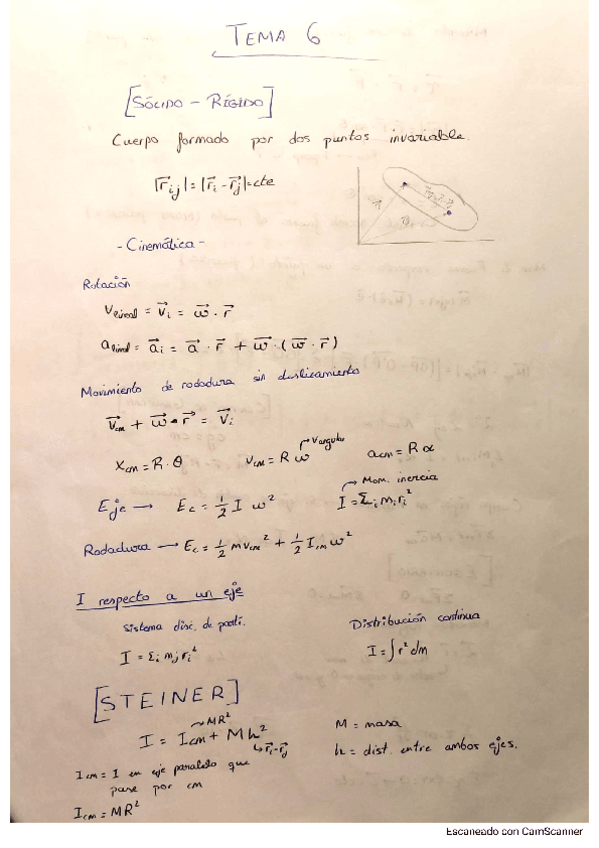 TEMA 6
[SÓLIDO - RÍGIDO]
Cuerpo formado por dos puntos invariable.
|r⃗ij| = |r⃗i - r⃗j| = cte
- Cinemática -
Rotación
v lineal = v⃗i = ω⃗ · r⃗
a lineal = a⃗i = a⃗ · r⃗ + ω⃗ · (ω⃗ · r⃗)
Movimiento de rodadura sin deslizamiento
v⃗cm + ω⃗ · r⃗ = v⃗i
Xcm = R · θ vcm = R ω → v angular acm = R α
Eje → Ec = 1/2 I ω² I = Σi mi ri² → Mom. inercia
Rodadura → Ec = 1/2 m vcm² + 1/2 Icm ω²
I respecto a un eje
Sistema disc. de partí. Distribución continua
I = Σi mj ri² I = ∫ r² dm
[STEINER]
I = Icm + M h² → MR² → r⃗i - r⃗j
M = masa
h = dist. entre ambos ejes.
Icm = I en eje paralelo que
pase por cm
Icm = MR²
Escaneado con CamScanner